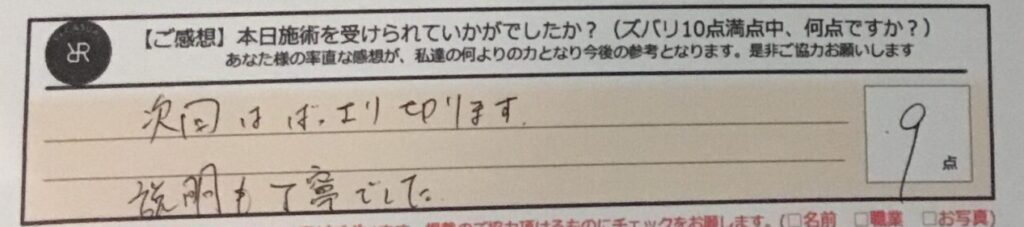 RR
【ご感想】本日施術を受けられていかがでしたか？（ズバリ10点満点中、何点ですか？）
あなた様の率直な感想が、私達の何よりの力となり今後の参考となります。是非ご協力お願いします
次回はばっエリ切ります。
9点
説明も丁寧でした。
にチェックをお願します。(□名前 □職業 □お写真)